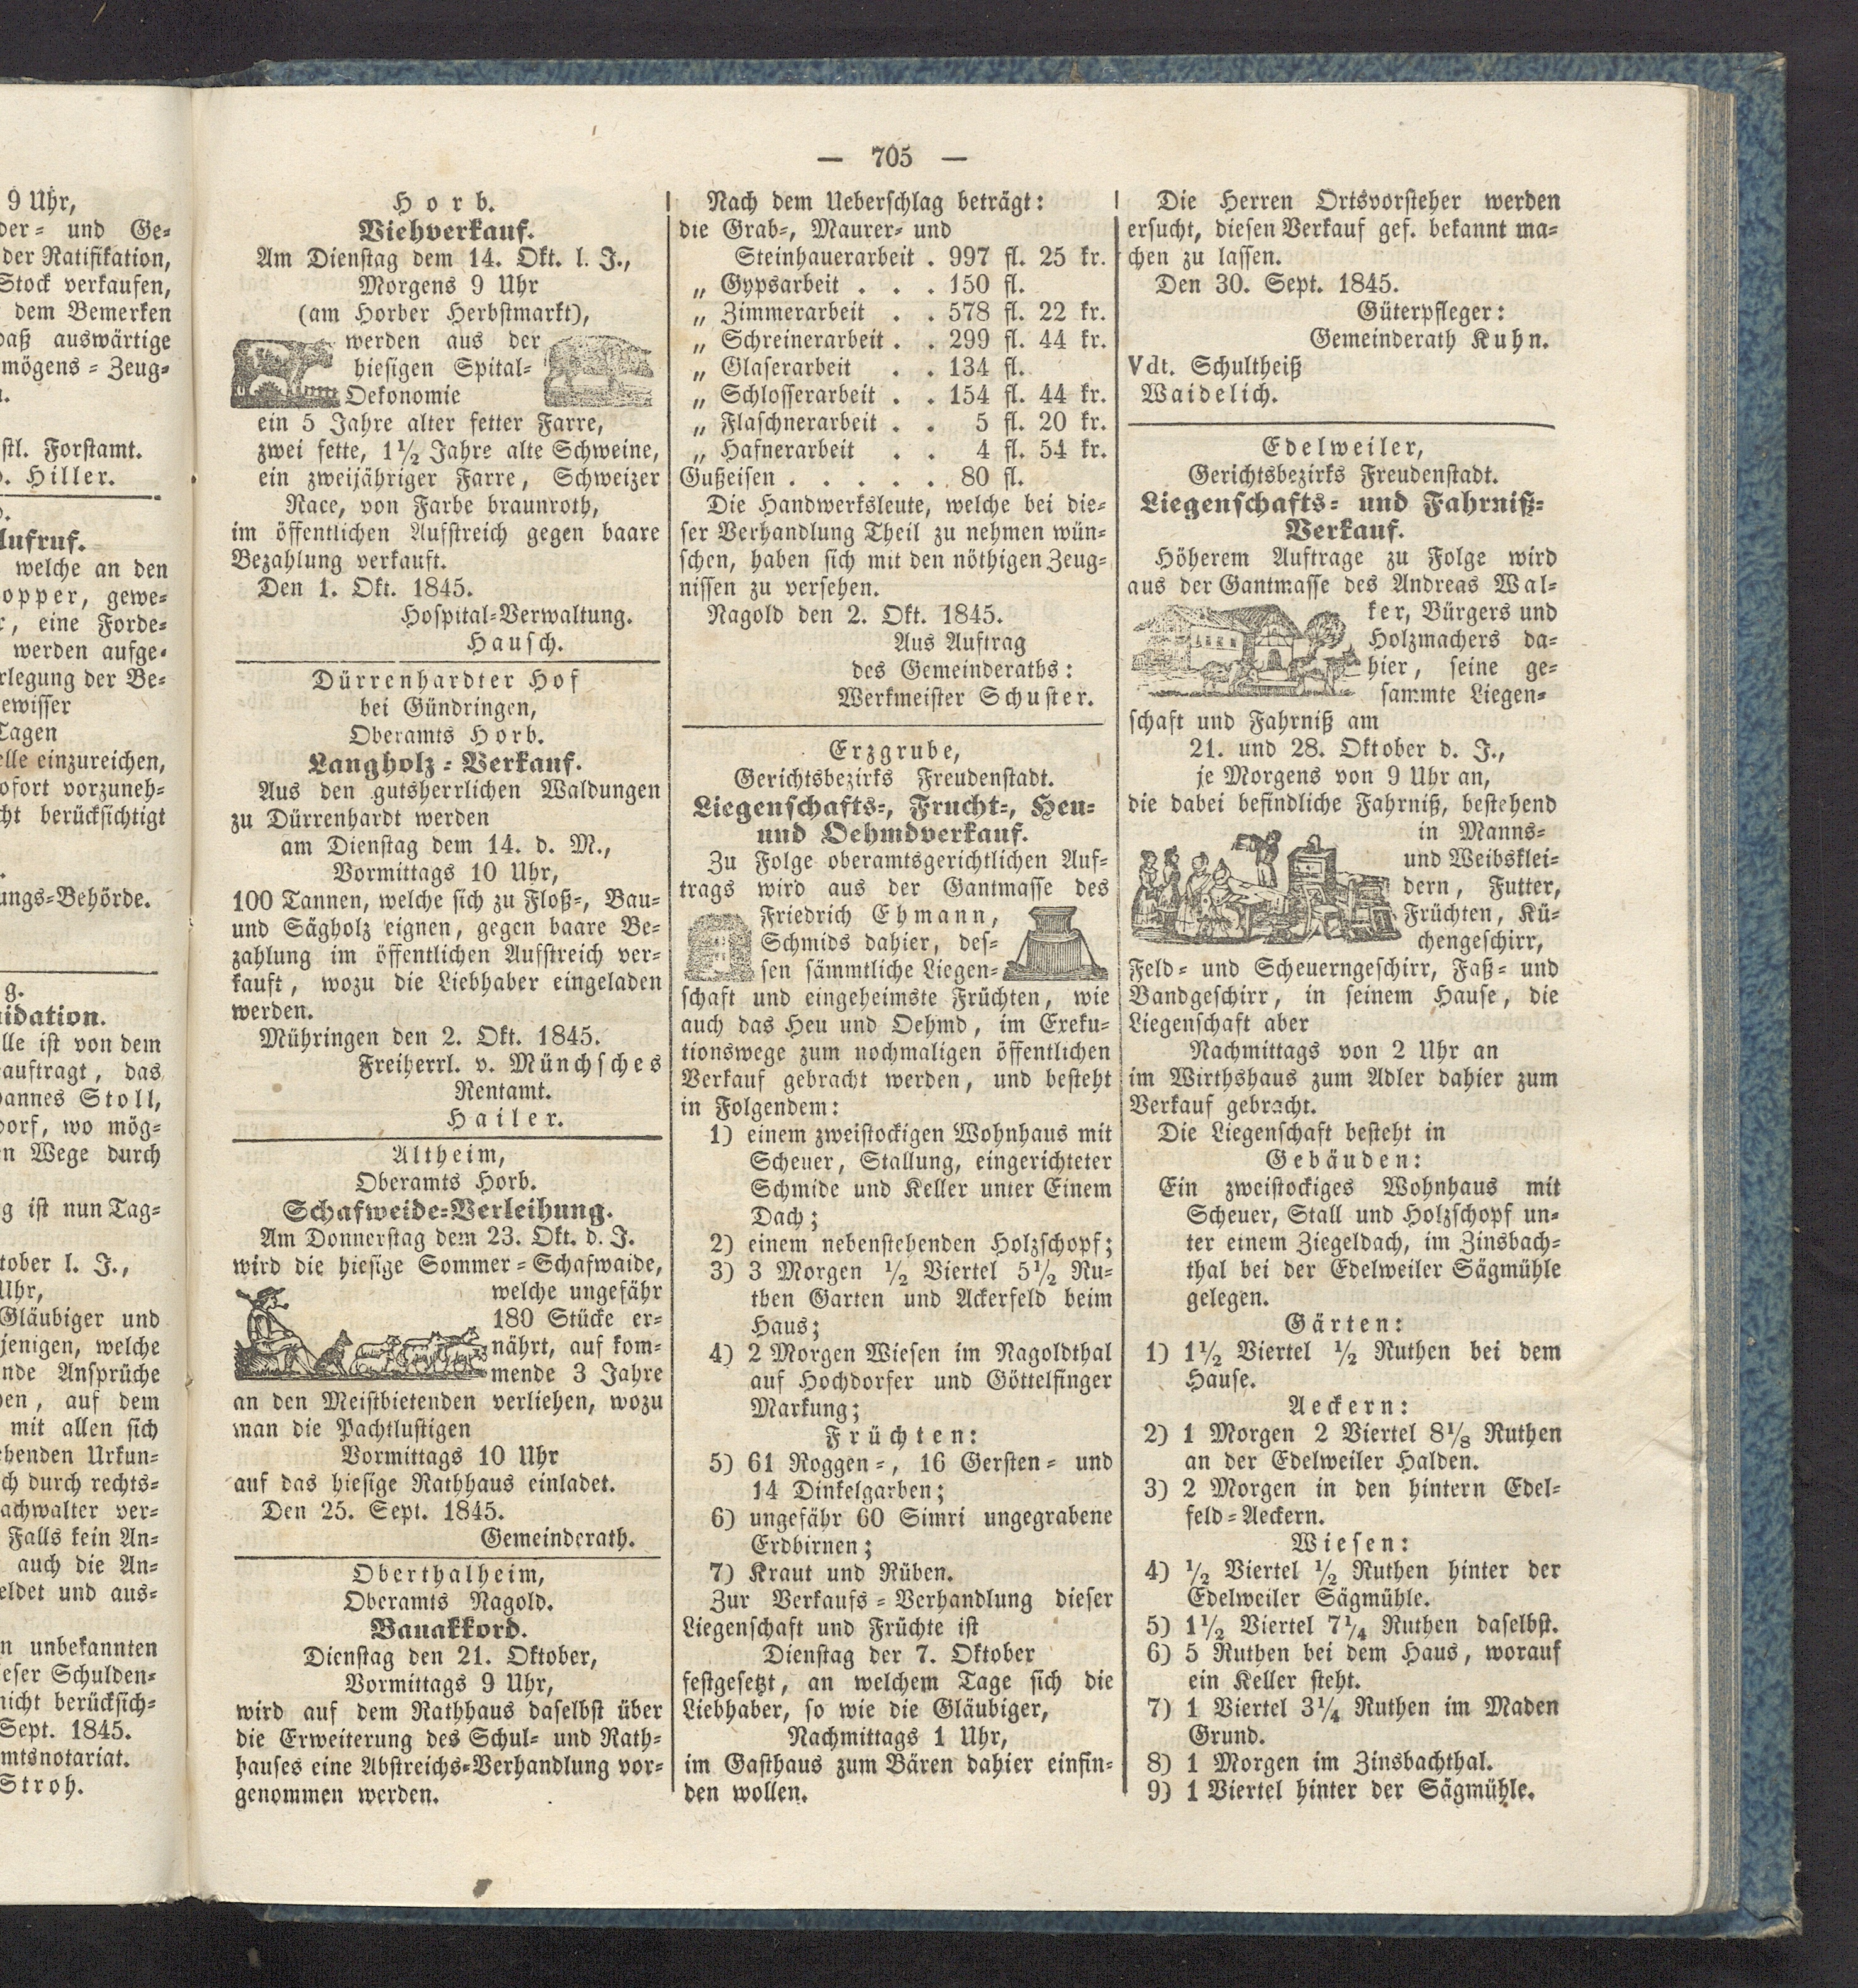 9 Uhr,
der- und Ge-
der Ratifikation,
Stock verkaufen,
dem Bemerken
daß auswärtige
mögens-Zeug-
stl. Forstamt.
Hiller.
Aufruf.
welche an den
opper, gewe-
eine Forde-
werden aufge-
rlegung der Be-
ewisser
Tagen
elle einzureichen,
ofort vorzuneh-
cht berücksichtigt
ungs-Behörde.
g.
idation.
lle ist von dem
auftragt, das
annes Stoll,
dorf, wo mög-
n Wege durch
g ist nun Tag-
tober l. J.,
Uhr,
Gläubiger und
jenigen, welche
nde Ansprüche
ben, auf dem
mit allen sich
ehenden Urkun-
ch durch rechts-
achwalter ver-
Falls kein An-
auch die An-
eldet und aus-
n unbekannten
eser Schulden-
nicht berücksich-
Sept. 1845.
mtsnotariat.
Stroh.
— 705 —
Horb.
Viehverkauf.
Am Dienstag dem 14. Okt. l. J.,
Morgens 9 Uhr
(am Horber Herbstmarkt),
werden aus der
hiesigen Spital-
Oekonomie
ein 5 Jahre alter fetter Farre,
zwei fette, 1½ Jahre alte Schweine,
ein zweijähriger Farre, Schweizer
Race, von Farbe braunroth,
im öffentlichen Aufstreich gegen baare
Bezahlung verkauft.
Den 1. Okt. 1845.
Hospital-Verwaltung.
Hausch.
Dürrenhardter Hof
bei Gündringen,
Oberamts Horb.
Langholz-Verkauf.
Aus den gutsherrlichen Waldungen
zu Dürrenhardt werden
am Dienstag dem 14. d. M.,
Vormittags 10 Uhr,
100 Tannen, welche sich zu Floß-, Bau-
und Sägholz eignen, gegen baare Be-
zahlung im öffentlichen Aufstreich ver-
kauft, wozu die Liebhaber eingeladen
werden.
Mühringen den 2. Okt. 1845.
Freiherrl. v. Münchsches
Rentamt.
Hailer.
Altheim,
Oberamts Horb.
Schafweide-Verleihung.
Am Donnerstag dem 23. Okt. d. J.
wird die hiesige Sommer-Schafwaide,
welche ungefähr
180 Stücke er-
nährt, auf kom-
mende 3 Jahre
an den Meistbietenden verliehen, wozu
man die Pachtlustigen
Vormittags 10 Uhr
auf das hiesige Rathhaus einladet.
Den 25. Sept. 1845.
Gemeinderath.
Oberthalheim,
Oberamts Nagold.
Bauakkord.
Dienstag den 21. Oktober,
Vormittags 9 Uhr,
wird auf dem Rathhaus daselbst über
die Erweiterung des Schul- und Rath-
hauses eine Abstreichs-Verhandlung vor-
genommen werden.
Nach dem Ueberschlag beträgt:
die Grab-, Maurer- und
Steinhauerarbeit . 997 fl. 25 kr.
„ Gypsarbeit . . . 150 fl.
„ Zimmerarbeit . . 578 fl. 22 kr.
„ Schreinerarbeit . . 299 fl. 44 kr.
„ Glaserarbeit . . 134 fl.
„ Schlosserarbeit . . 154 fl. 44 kr.
„ Flaschnerarbeit . . 5 fl. 20 kr.
„ Hafnerarbeit . . 4 fl. 54 kr.
Gußeisen . . . . . 80 fl.
Die Handwerksleute, welche bei die-
ser Verhandlung Theil zu nehmen wün-
schen, haben sich mit den nöthigen Zeug-
nissen zu versehen.
Nagold den 2. Okt. 1845.
Aus Auftrag
des Gemeinderaths:
Werkmeister Schuster.
Erzgrube,
Gerichtsbezirks Freudenstadt.
Liegenschafts-, Frucht-, Heu-
und Oehmdverkauf.
Zu Folge oberamtsgerichtlichen Auf-
trags wird aus der Gantmasse des
Friedrich Ehmann,
Schmids dahier, des-
sen sämmtliche Liegen-
schaft und eingeheimste Früchten, wie
auch das Heu und Oehmd, im Exeku-
tionswege zum nochmaligen öffentlichen
Verkauf gebracht werden, und besteht
in Folgendem:
1) einem zweistockigen Wohnhaus mit
Scheuer, Stallung, eingerichteter
Schmide und Keller unter Einem
Dach;
2) einem nebenstehenden Holzschopf;
3) 3 Morgen ½ Viertel 5½ Ru-
then Garten und Ackerfeld beim
Haus;
4) 2 Morgen Wiesen im Nagoldthal
auf Hochdorfer und Göttelfinger
Markung;
Früchten:
5) 61 Roggen-, 16 Gersten- und
14 Dinkelgarben;
6) ungefähr 60 Simri ungegrabene
Erdbirnen;
7) Kraut und Rüben.
Zur Verkaufs-Verhandlung dieser
Liegenschaft und Früchte ist
Dienstag der 7. Oktober
festgesetzt, an welchem Tage sich die
Liebhaber, so wie die Gläubiger,
Nachmittags 1 Uhr,
im Gasthaus zum Bären dahier einfin-
den wollen.
Die Herren Ortsvorsteher werden
ersucht, diesen Verkauf gef. bekannt ma-
chen zu lassen.
Den 30. Sept. 1845.
Güterpfleger:
Gemeinderath Kuhn.
Vdt. Schultheiß
Waidelich.
Edelweiler,
Gerichtsbezirks Freudenstadt.
Liegenschafts- und Fahrniß-
Verkauf.
Höherem Auftrage zu Folge wird
aus der Gantmasse des Andreas Wal-
ker, Bürgers und
Holzmachers da-
hier, seine ge-
sammte Liegen-
schaft und Fahrniß am
21. und 28. Oktober d. J.,
je Morgens von 9 Uhr an,
die dabei befindliche Fahrniß, bestehend
in Manns-
und Weibsklei-
dern, Futter,
Früchten, Kü-
chengeschirr,
Feld- und Scheuerngeschirr, Faß- und
Bandgeschirr, in seinem Hause, die
Liegenschaft aber
Nachmittags von 2 Uhr an
im Wirthshaus zum Adler dahier zum
Verkauf gebracht.
Die Liegenschaft besteht in
Gebäuden:
Ein zweistockiges Wohnhaus mit
Scheuer, Stall und Holzschopf un-
ter einem Ziegeldach, im Zinsbach-
thal bei der Edelweiler Sägmühle
gelegen.
Gärten:
1) 1½ Viertel ½ Ruthen bei dem
Hause.
Aeckern:
2) 1 Morgen 2 Viertel 8⅛ Ruthen
an der Edelweiler Halden.
3) 2 Morgen in den hintern Edel-
feld-Aeckern.
Wiesen:
4) ½ Viertel ½ Ruthen hinter der
Edelweiler Sägmühle.
5) 1½ Viertel 7¼ Ruthen daselbst.
6) 5 Ruthen bei dem Haus, worauf
ein Keller steht.
7) 1 Viertel 3¼ Ruthen im Maden
Grund.
8) 1 Morgen im Zinsbachthal.
9) 1 Viertel hinter der Sägmühle.